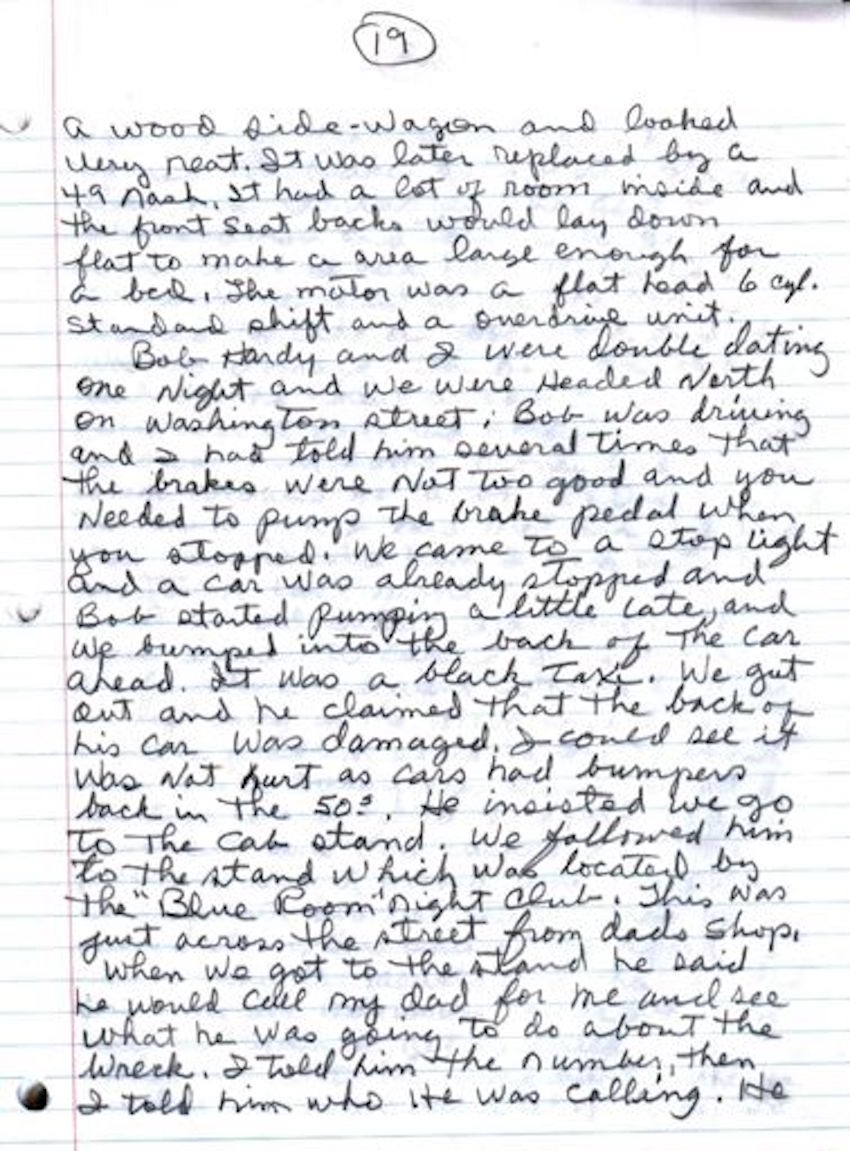 19
a wood side-wagon and looked
very neat. It was later replaced by a
49 Nash. It had a lot of room inside and
the front seat backs would lay down
flat to make a area large enough for
a bed. The motor was a flat head 6 cyl.
standard shift and a overdrive unit.
Bob Hardy and I were double dating
one Night and we were Headed North
on Washington street; Bob was driving
and I had told him several times that
the brakes were Not too good and you
Needed to pump the brake pedal when
you stopped. We came to a stop light
and a car was already stopped and
Bob started pumping a little late, and
we bumped into the back of the car
ahead. It was a black Taxi. We gut
out and he claimed that the back of
his car was damaged. I could see it
was Not hurt as cars had bumpers
back in the 50s. He insisted we go
to the cab stand. We followed him
to the stand which was located by
the "Blue Room" night club. This was
just across the street from dads shop.
When we got to the stand he said
he would call my dad for me and see
what he was going to do about the
wreck. I told him the number, then
I told him who He was calling. He